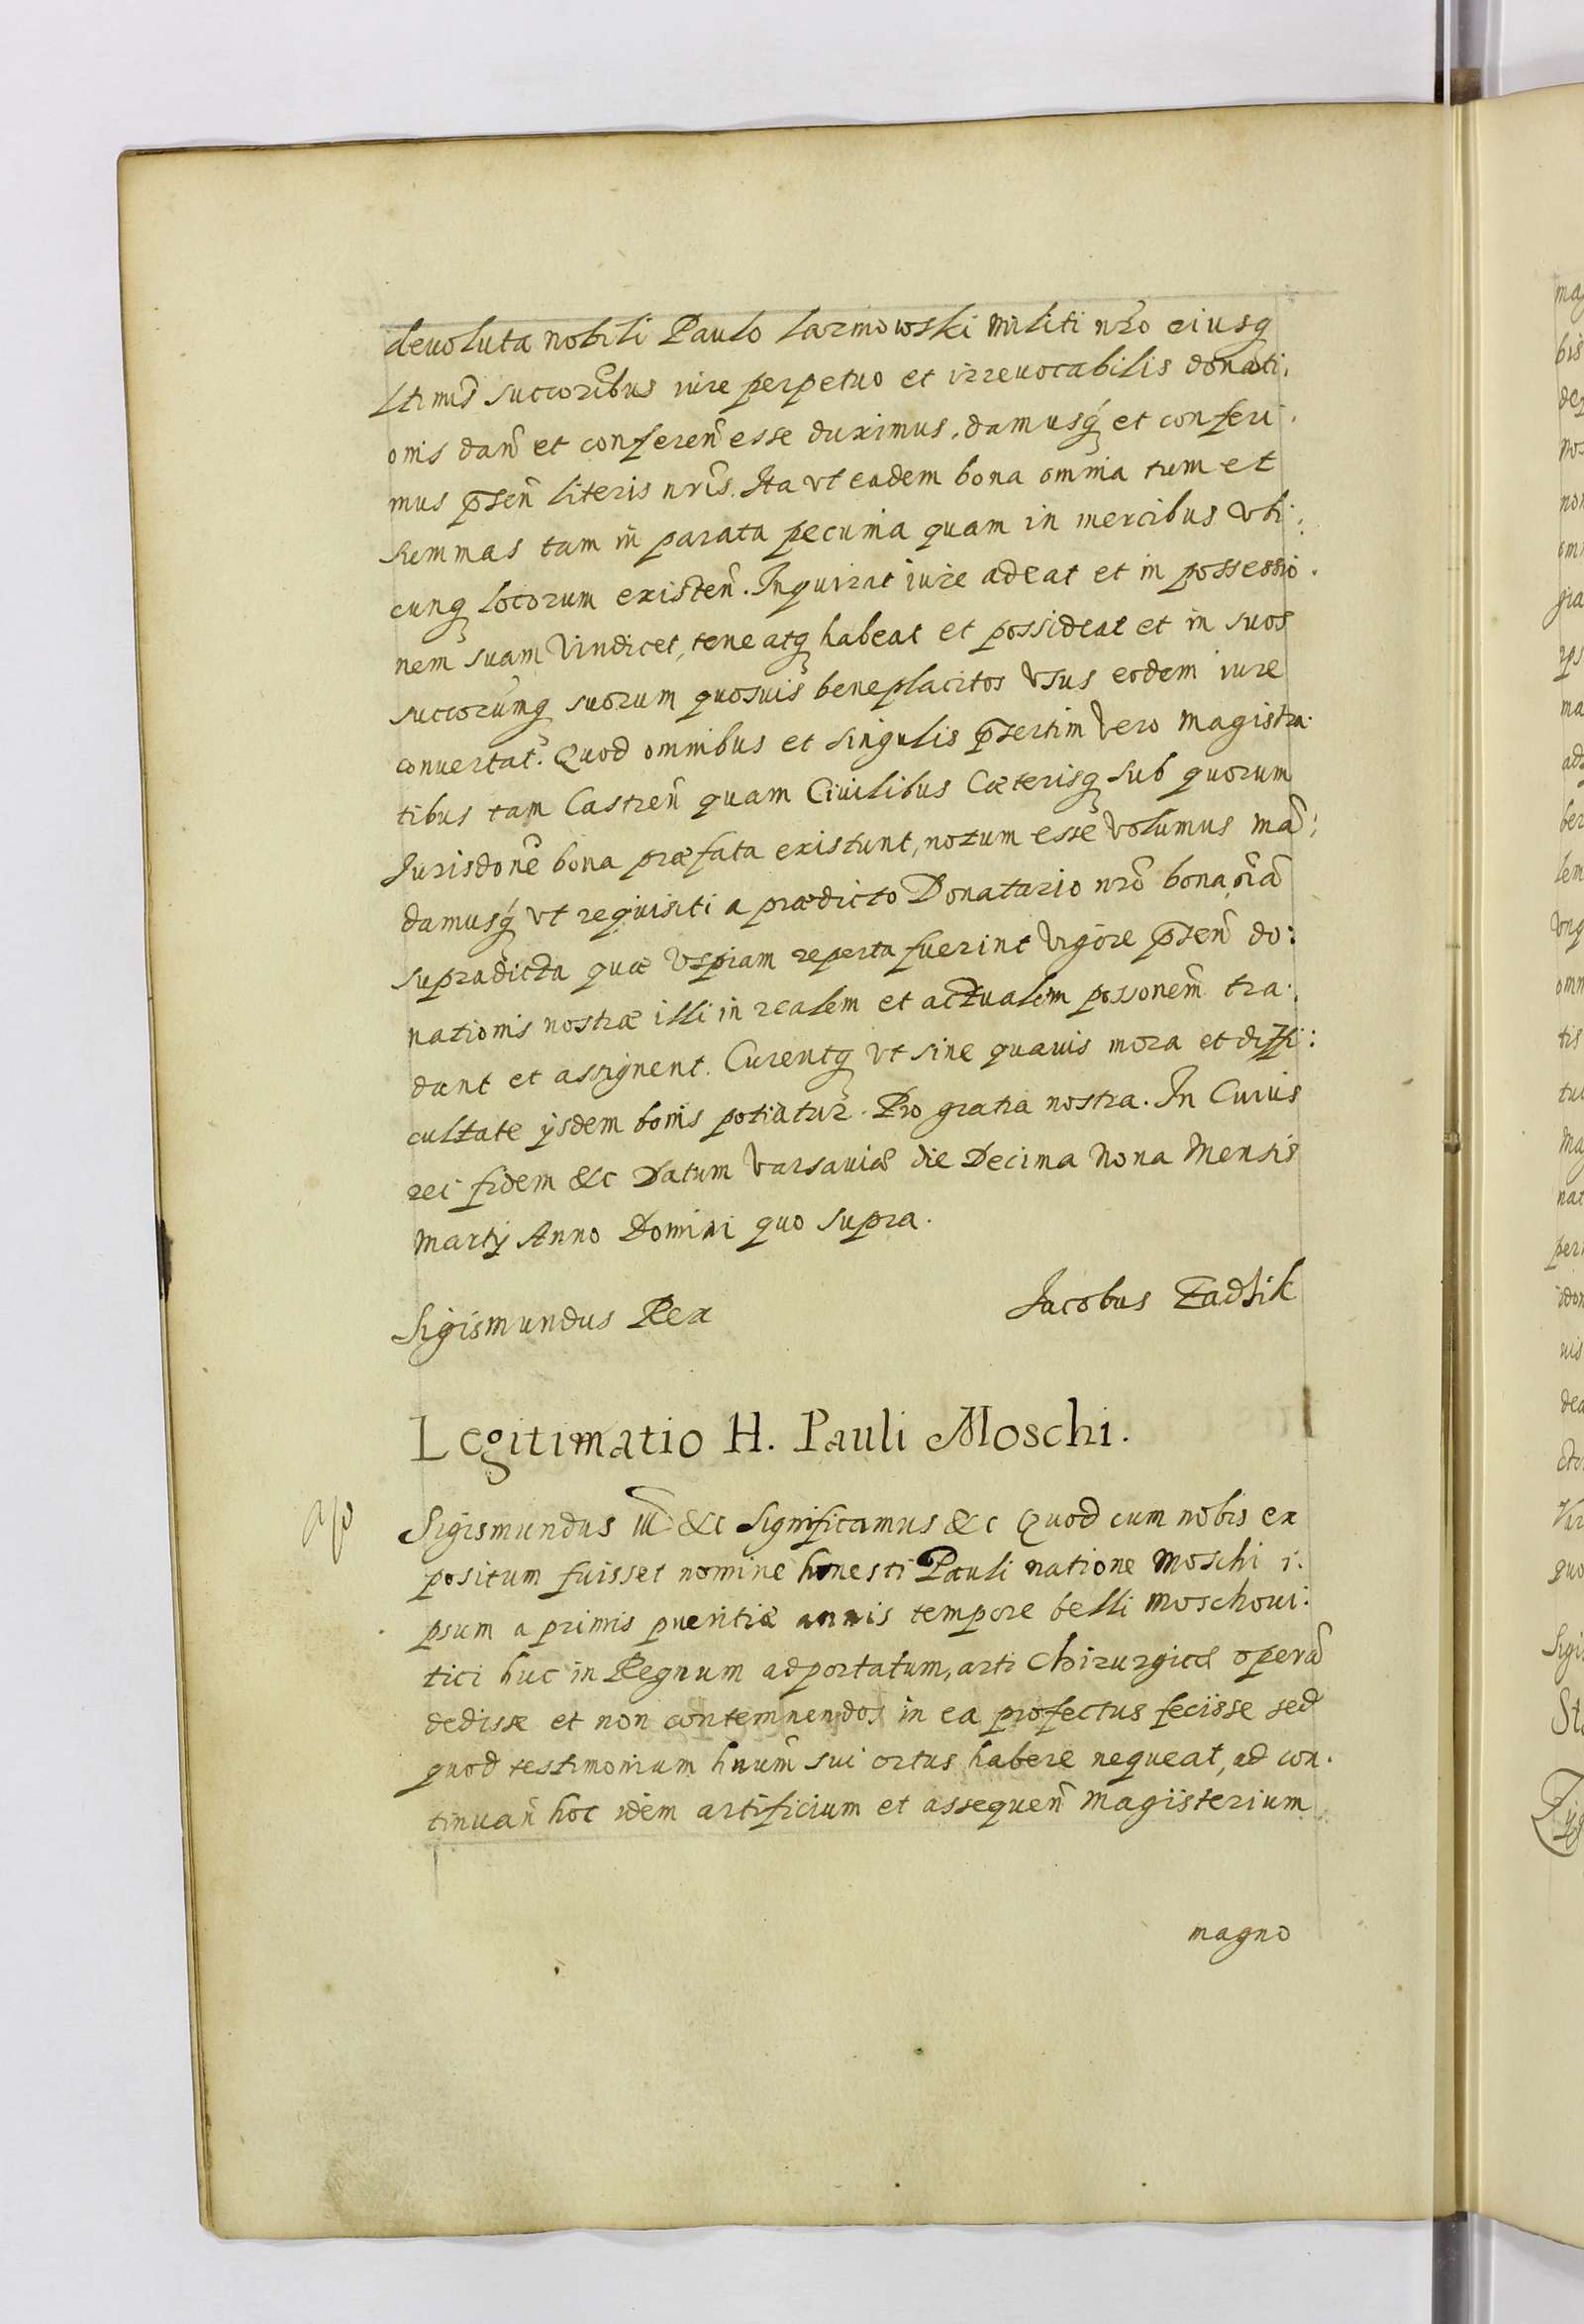 devoluta nobili Paulo Iarmowski militi nr̃o eiusq̨
Ltimis succoribus iure perpetuo et irreuocabilis donati.
onis dañ et conferen̄ esse duximus, damusq́ et conferi.
mus p̄sen̄ literis nr̃is. Ita vt eadem bona omnia tum et
summas tam in parata pecunia quam in mercibus vbi:
cunq̨ locorum existen̄. Inquirat iure adeat et in possessio.
nem suam vindicet, teneatq̨ habeat et possideat et in suos
succorumq̨ suorum quosuis beneplacitos vsus eodem iure
conuertat. Quod omnibus et singulis p̄sertim vero magistra.
tibus tam Castren̄ quam Ciuilibus Cæterisq̨ sub quorum
Jurisdone bona præfata existunt, notum esse volumus mā:
damusq́ vt requisiti a prædicto Donatario nrō bona oīa
supradicta quæ vspiam reperta fuerint vigore p̄sen̄ do:
nationis nostræ illi in realem et actualem possonem tra:
dant et assignent. Curentq̨ vt sine quauis mora et diffi:
cultate ysdem bonis potiatur. Pro gratia nostra. In Cuius
rei fidem &c Datum varsauiæ die Decima Nona Mensis
Martÿ Anno Domini quo supra.
Sigismundus Rex Jacobus Zadzik
Legitimatio H. Pauli Moschi.
Sigismundus III &c Significamus &c Quod cum nobis ex
positum fuisset nomine honesti Pauli natione Moschi i:
psum a primis pueritiæ annis tempore belli moschoui:
tici huc in Regnum adportatum, arti Chirurgicæ operā
dedisse et non contemnendos in ea profectus fecisse sed
quod testimonium hnum̄ sui ortus habere nequeat, ad con.
tinuan̄ hoc idem artificium et assequen̄ magisterium
magno